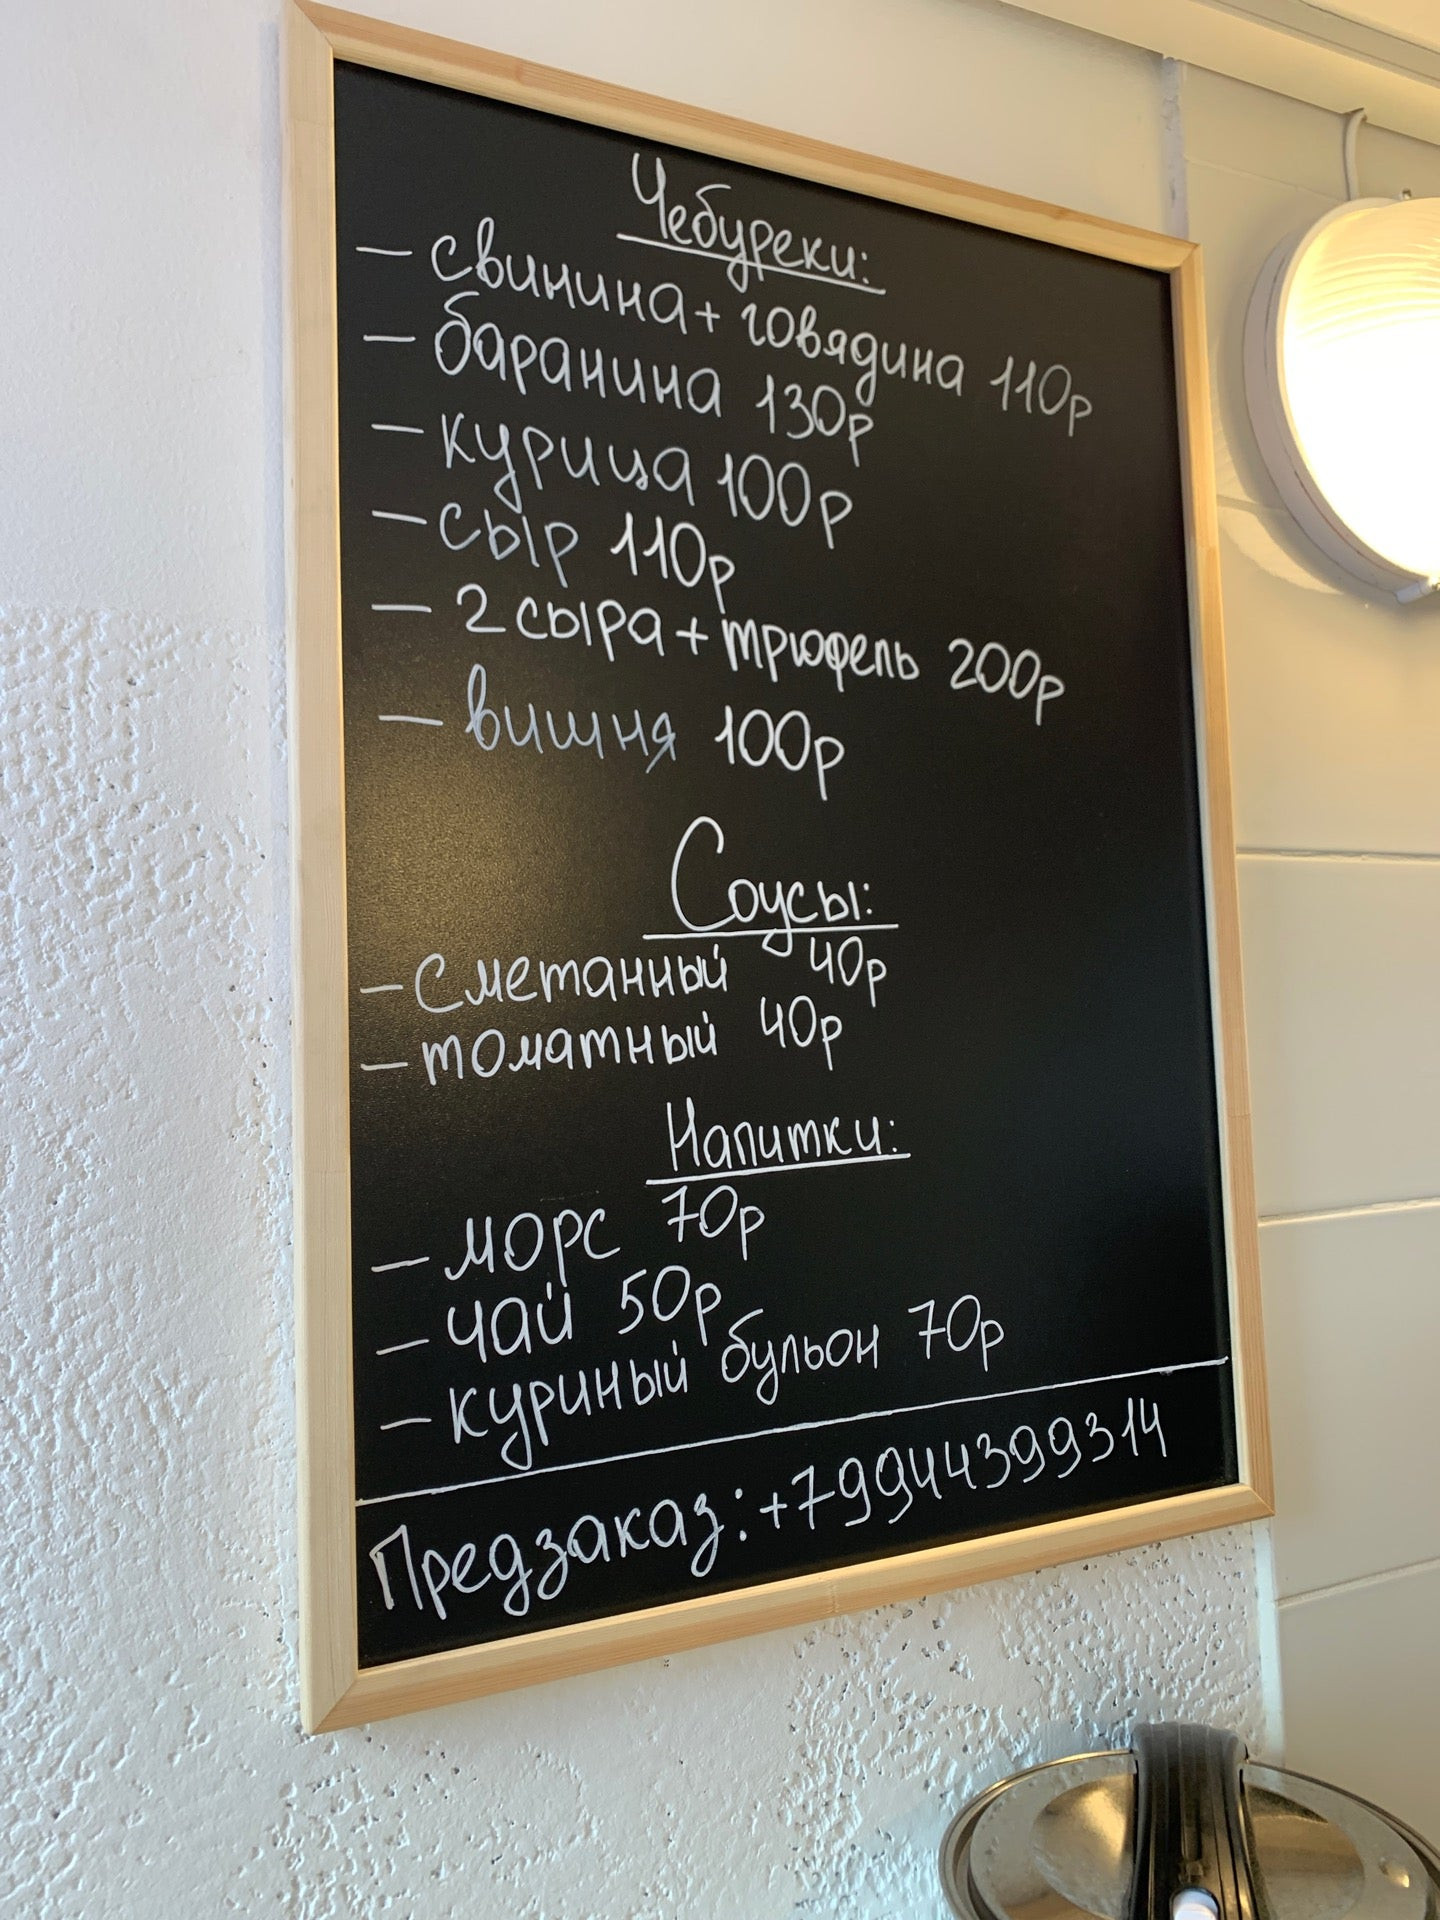 Чебуреки:
- свинина + говядина 110р
- баранина 130р
- курица 100р
- сыр 110р
- 2 сыра + трюфель 200р
- вишня 100р
Соусы:
- Сметанный 40р
- томатный 40р
Напитки:
- морс 70р
- чай 50р
- куриный бульон 70р
Предзаказ: +79944399314